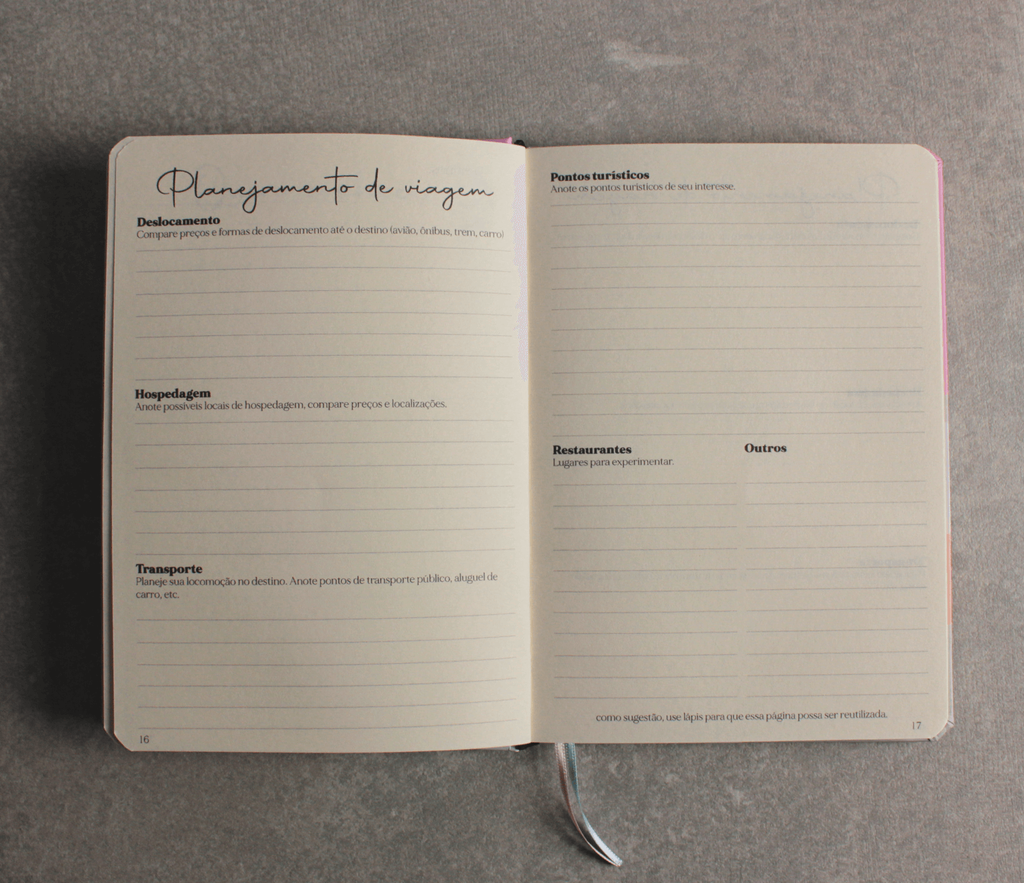 Planejamento de viagem
Deslocamento
Compare preços e formas de deslocamento até o destino (avião, ônibus, trem, carro)
Hospedagem
Anote possíveis locais de hospedagem, compare preços e localizações.
Transporte
Planeje sua locomoção no destino. Anote pontos de transporte público, aluguel de
carro, etc.
16
Pontos turísticos
Anote os pontos turísticos de seu interesse.
Restaurantes
Lugares para experimentar.
Outros
como sugestão, use lápis para que essa página possa ser reutilizada.
17